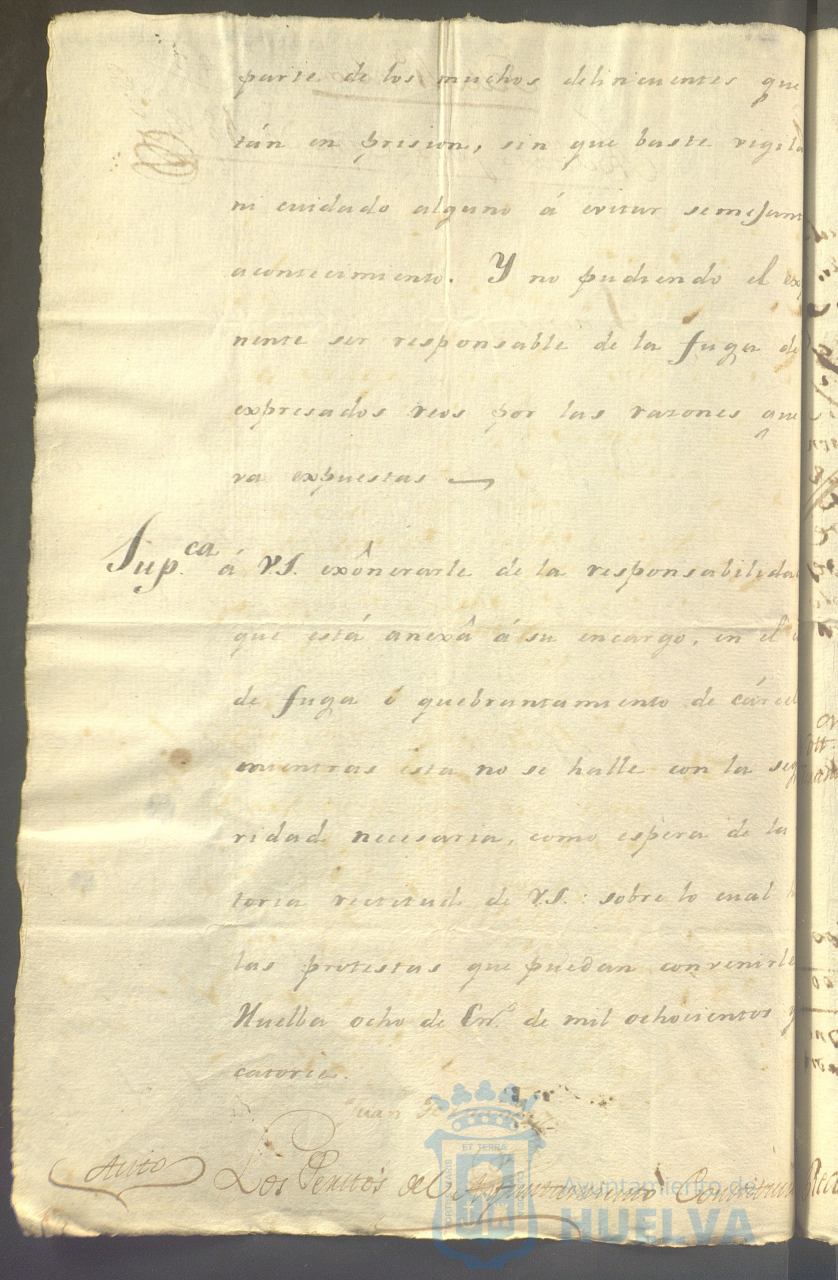 parte de los muchos delincuentes que
tán en prision, sin que baste vigila
ni cuidado alguno á evitar semejan
acontecimiento. Y no pudiendo el exp
nente ser responsable de la fuga de
expresados reos por las razones que
va expuestas
Sup.ca á V.S. exônerarle de la responsabilidad
que está anexâ á su encargo, en el
de fuga ó quebrantamiento de cárcel
mientras esta no se halle con la segu
ridad necesaria, como espera de la
toria rectitud de V.S.: sobre lo cual
las protestas que puedan convenirle
Huelba ocho de En.º de mil ochocientos y
catorce.
Juan
Auto Los Peritos del Ayuntamiento
ET TERRA
Ayuntamiento de
HUELVA